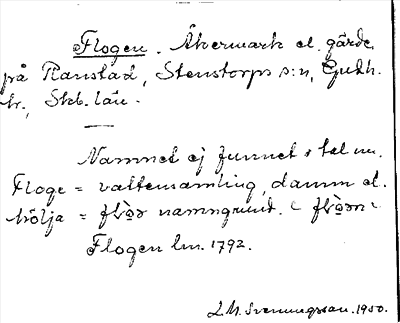 Flogen. Åkermark el. gärde
på Ranstad, Stenstorps s:n, Gudh.
hr., Skb. län.
Namnet ej funnet i tal nu.
Floge = vattensamling, damm el.
hölja = namngrund.
Flogen lm. 1792.
Svenungsson. 1950.